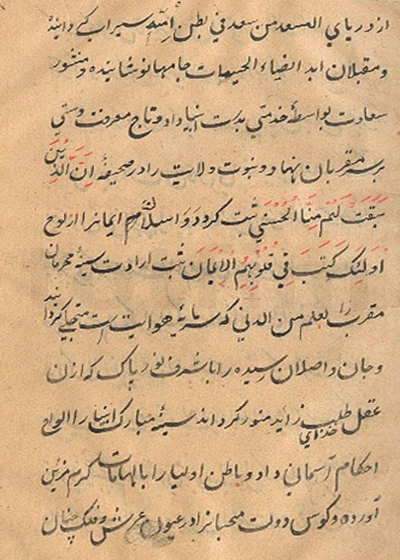 از دریای السعد من سعد فی بطن امه سیراب کردانید
و مقبلان ابد انضیاء الحیوهات جامها نوشانیده و منشور
سعادت بواسطهٔ خدمتی بدست انبیا داد و تاج معرفت وستی
بر سر مقربان نهاد و نبوت و ولایت را در صحیفهٔ اِنَّ الَّذِینَ
سَبَقَت لَهُم مِنَّا الحُسنی ثبت کرد و اسلام ایمانرا از لوح
اُولئِکَ کَتَبَ فِی قُلُوبِهِمُ الاِیمَان ثبت ارادت سینهٔ محرمان
مقرب را بعلم من لدنی که سرمایهٔ هوایتست متجلی کردانید
و جان واصلان رسیده را باشرف نور پاک که از ان
عقل طلب خدای زاید منور کرد اند سینهٔ مبارک انبیا را الواح
احکام آسمانی داد و باطن اولیا را بالهامات کرم مزین
آورده و کوس دولت محبانرا در عیون عرش و فلک چنان